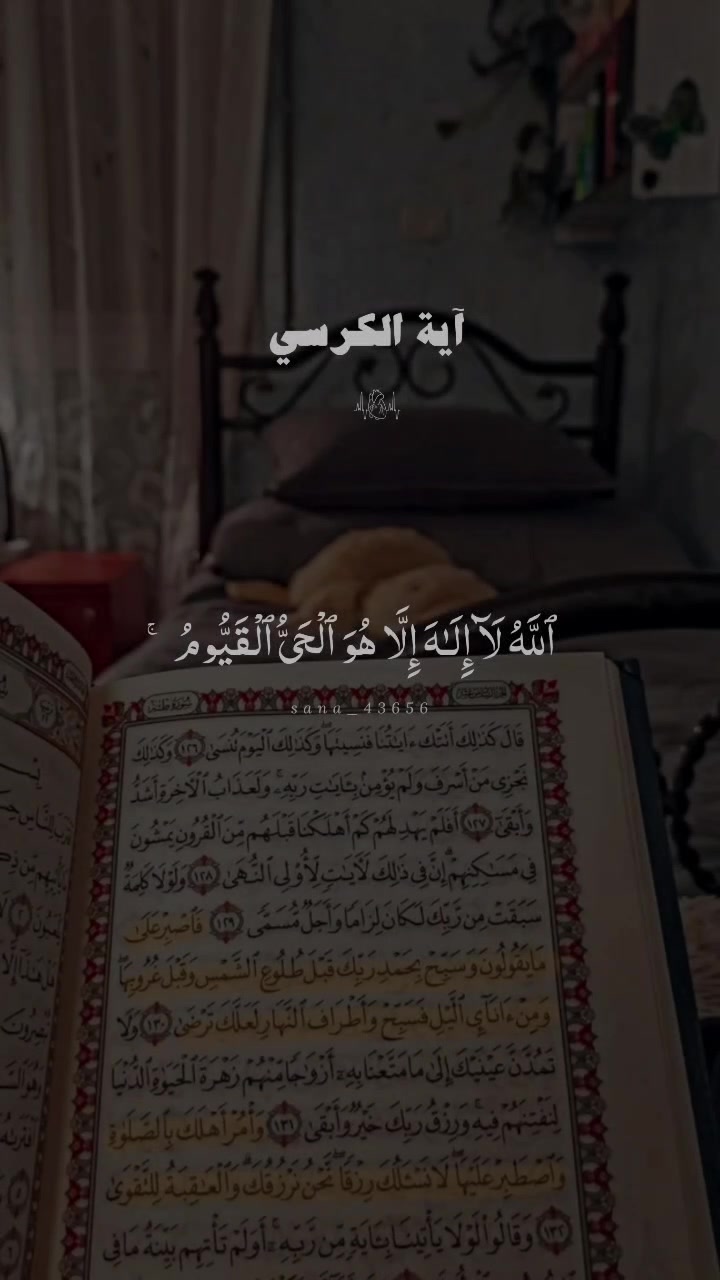 آية الكرسي
ٱللَّهُ لَآ إِلَٰهَ إِلَّا هُوَ ٱلْحَىُّ ٱلْقَيُّومُ ۚ
sana_43656
سورة طه
قَالَ كَذَٰلِكَ أَتَتْكَ ءَايَٰتُنَا فَنَسِيتَهَا ۖ وَكَذَٰلِكَ ٱلْيَوْمَ تُنسَىٰ ١٢٦ وَكَذَٰلِكَ
نَجْزِى مَنْ أَسْرَفَ وَلَمْ يُؤْمِنۢ بِـَٔايَٰتِ رَبِّهِۦ ۚ وَلَعَذَابُ ٱلْءَاخِرَةِ أَشَدُّ
وَأَبْقَىٰٓ ١٢٧ أَفَلَمْ يَهْدِ لَهُمْ كَمْ أَهْلَكْنَا قَبْلَهُم مِّنَ ٱلْقُرُونِ يَمْشُونَ
فِى مَسَٰكِنِهِمْ ۗ إِنَّ فِى ذَٰلِكَ لَءَايَٰتٍ لِّأُو۟لِى ٱلنُّهَىٰ ١٢٨ وَلَوْلَا كَلِمَةٌ
سَبَقَتْ مِن رَّبِّكَ لَكَانَ لِزَامًا وَأَجَلٌ مُّسَمًّى ١٢٩ فَٱصْبِرْ عَلَىٰ
مَا يَقُولُونَ وَسَبِّحْ بِحَمْدِ رَبِّكَ قَبْلَ طُلُوعِ ٱلشَّمْسِ وَقَبْلَ غُرُوبِهَا ۖ
وَمِنْ ءَانَآئِ ٱلَّيْلِ فَسَبِّحْ وَأَطْرَافَ ٱلنَّهَارِ لَعَلَّكَ تَرْضَىٰ ١٣٠ وَلَا
تَمُدَّنَّ عَيْنَيْكَ إِلَىٰ مَا مَتَّعْنَا بِهِۦٓ أَزْوَٰجًا مِّنْهُمْ زَهْرَةَ ٱلْحَيَوٰةِ ٱلدُّنْيَا
لِنَفْتِنَهُمْ فِيهِ ۚ وَرِزْقُ رَبِّكَ خَيْرٌ وَأَبْقَىٰ ١٣١ وَأْمُرْ أَهْلَكَ بِٱلصَّلَوٰةِ
وَٱصْطَبِرْ عَلَيْهَا ۖ لَا نَسْـَٔلُكَ رِزْقًا ۖ نَّحْنُ نَرْزُقُكَ ۗ وَٱلْعَٰقِبَةُ لِلتَّقْوَىٰ
١٣٢ وَقَالُوا۟ لَوْلَا يَأْتِينَا بِـَٔايَةٍ مِّن رَّبِّهِۦٓ ۚ أَوَلَمْ تَأْتِهِم بَيِّنَةُ مَا فِى